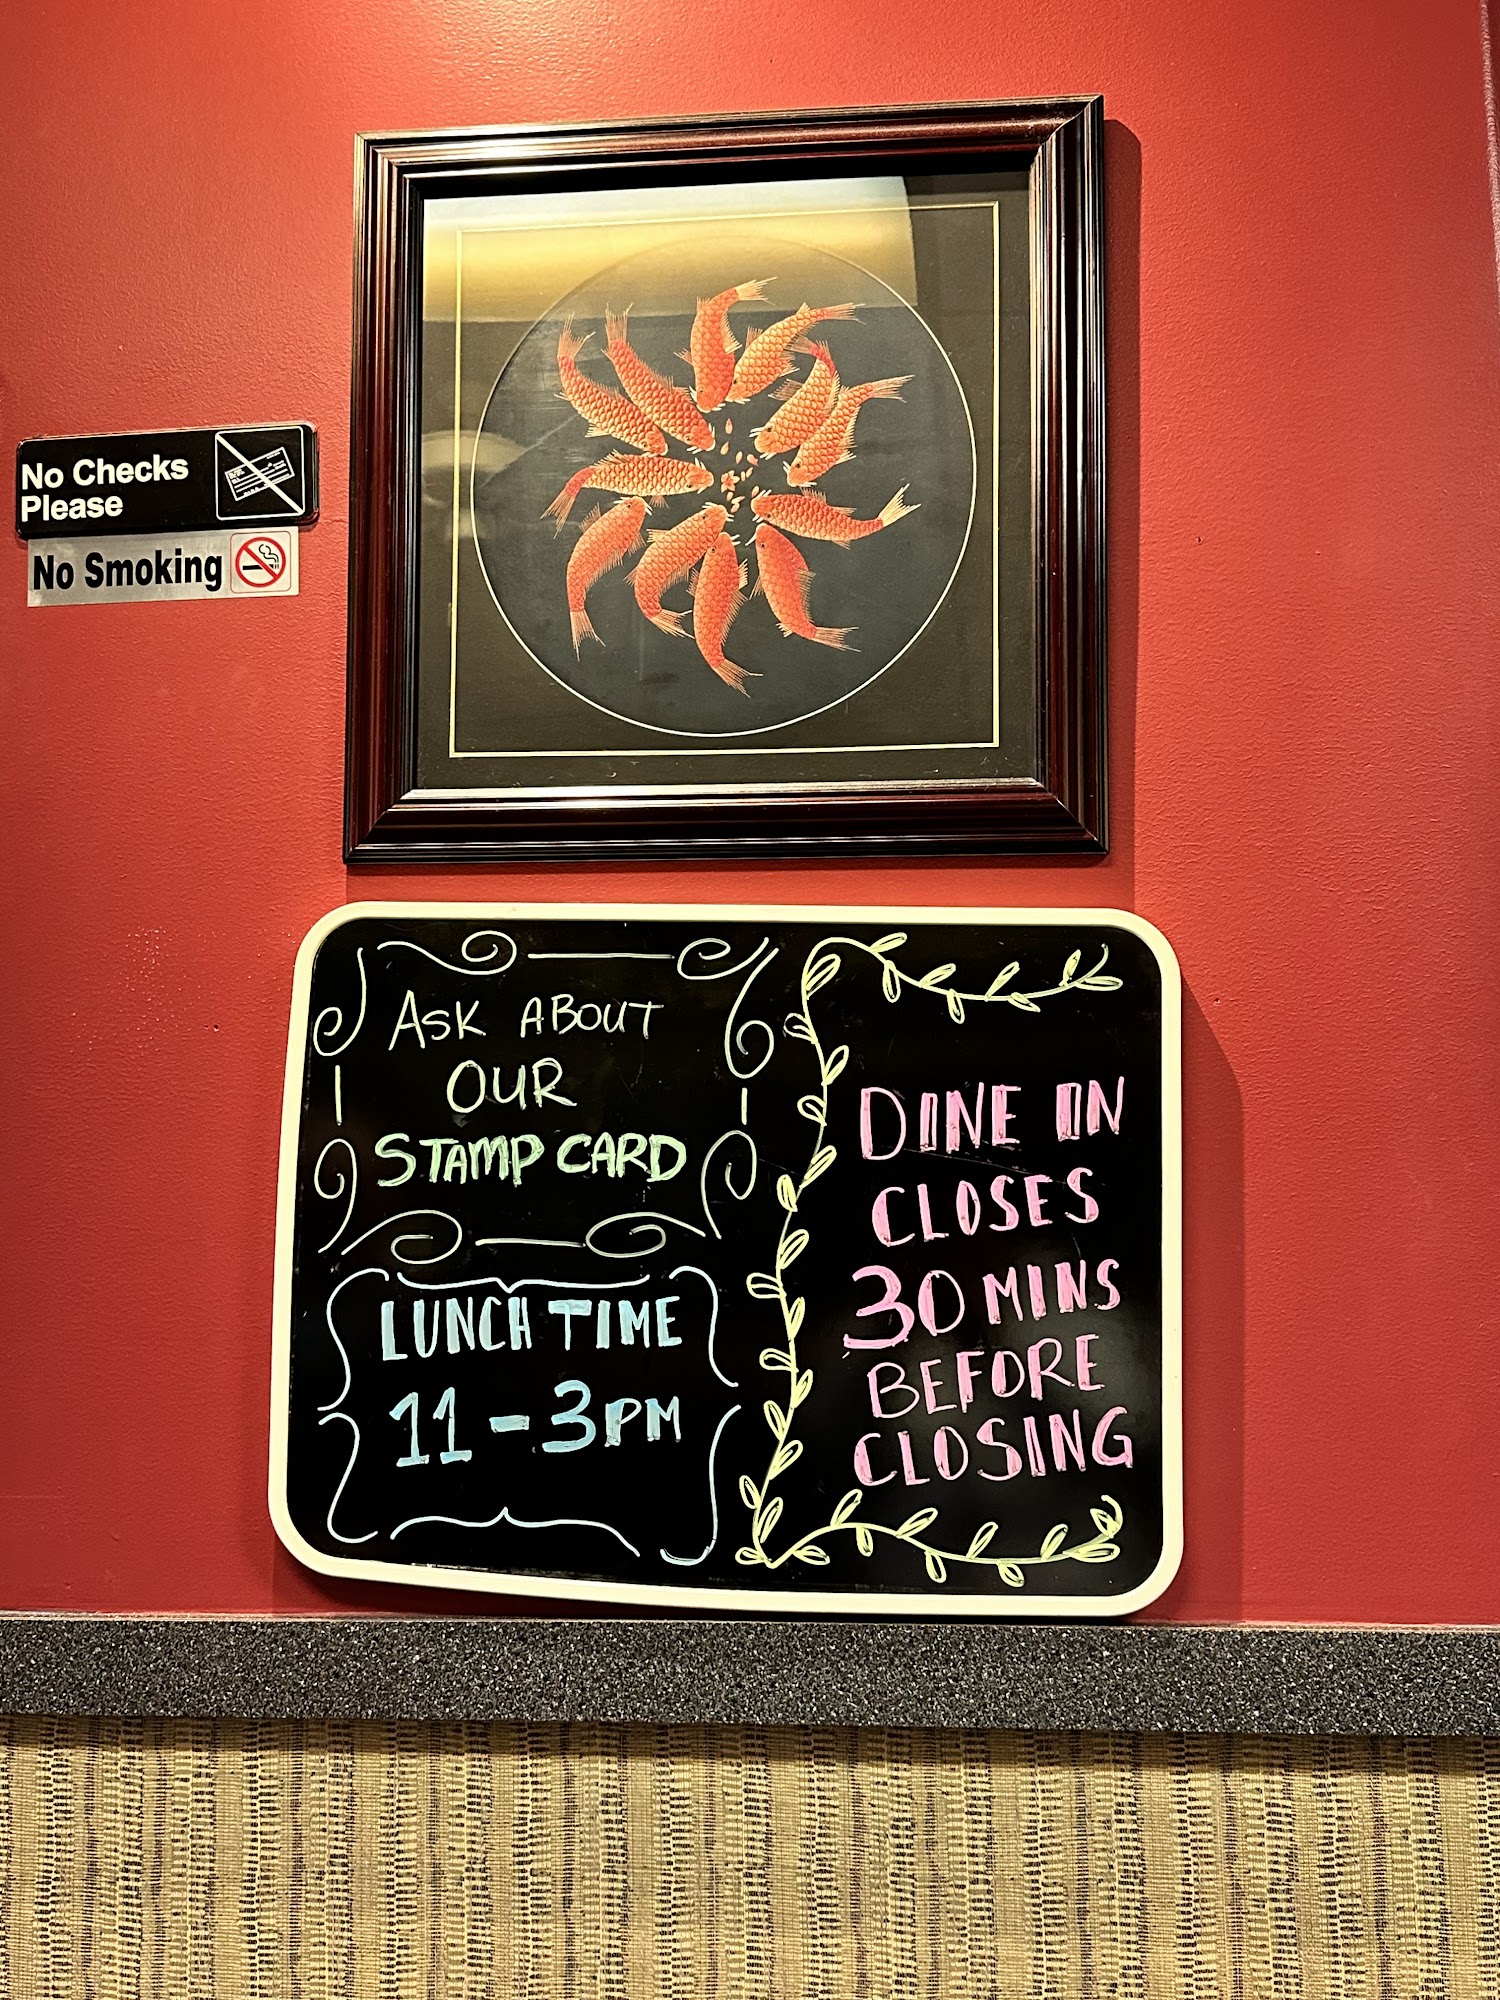 No Checks
Please
No Smoking
ASK ABOUT
OUR
STAMP CARD
LUNCH TIME
11-3PM
DINE IN
CLOSES
30 MINS
BEFORE
CLOSING